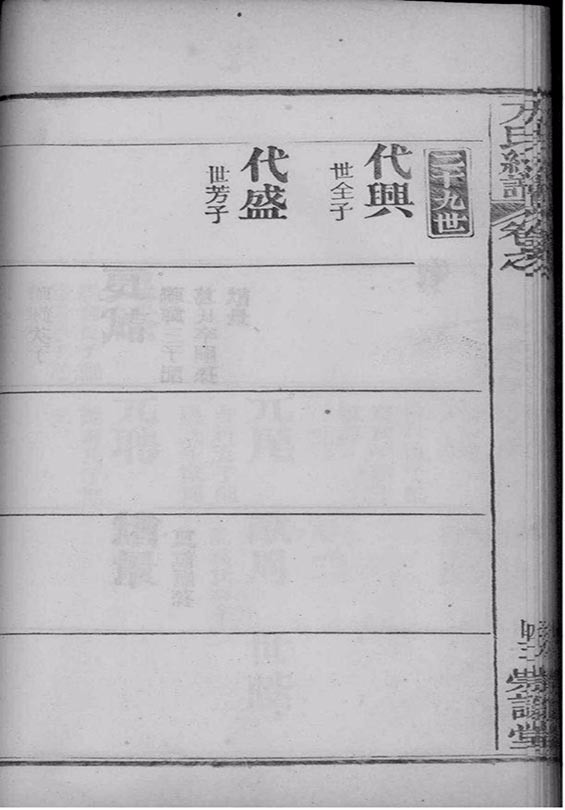 三十九世
代興
世全子
代盛
世芳子
方氏
譜
卷之
堂